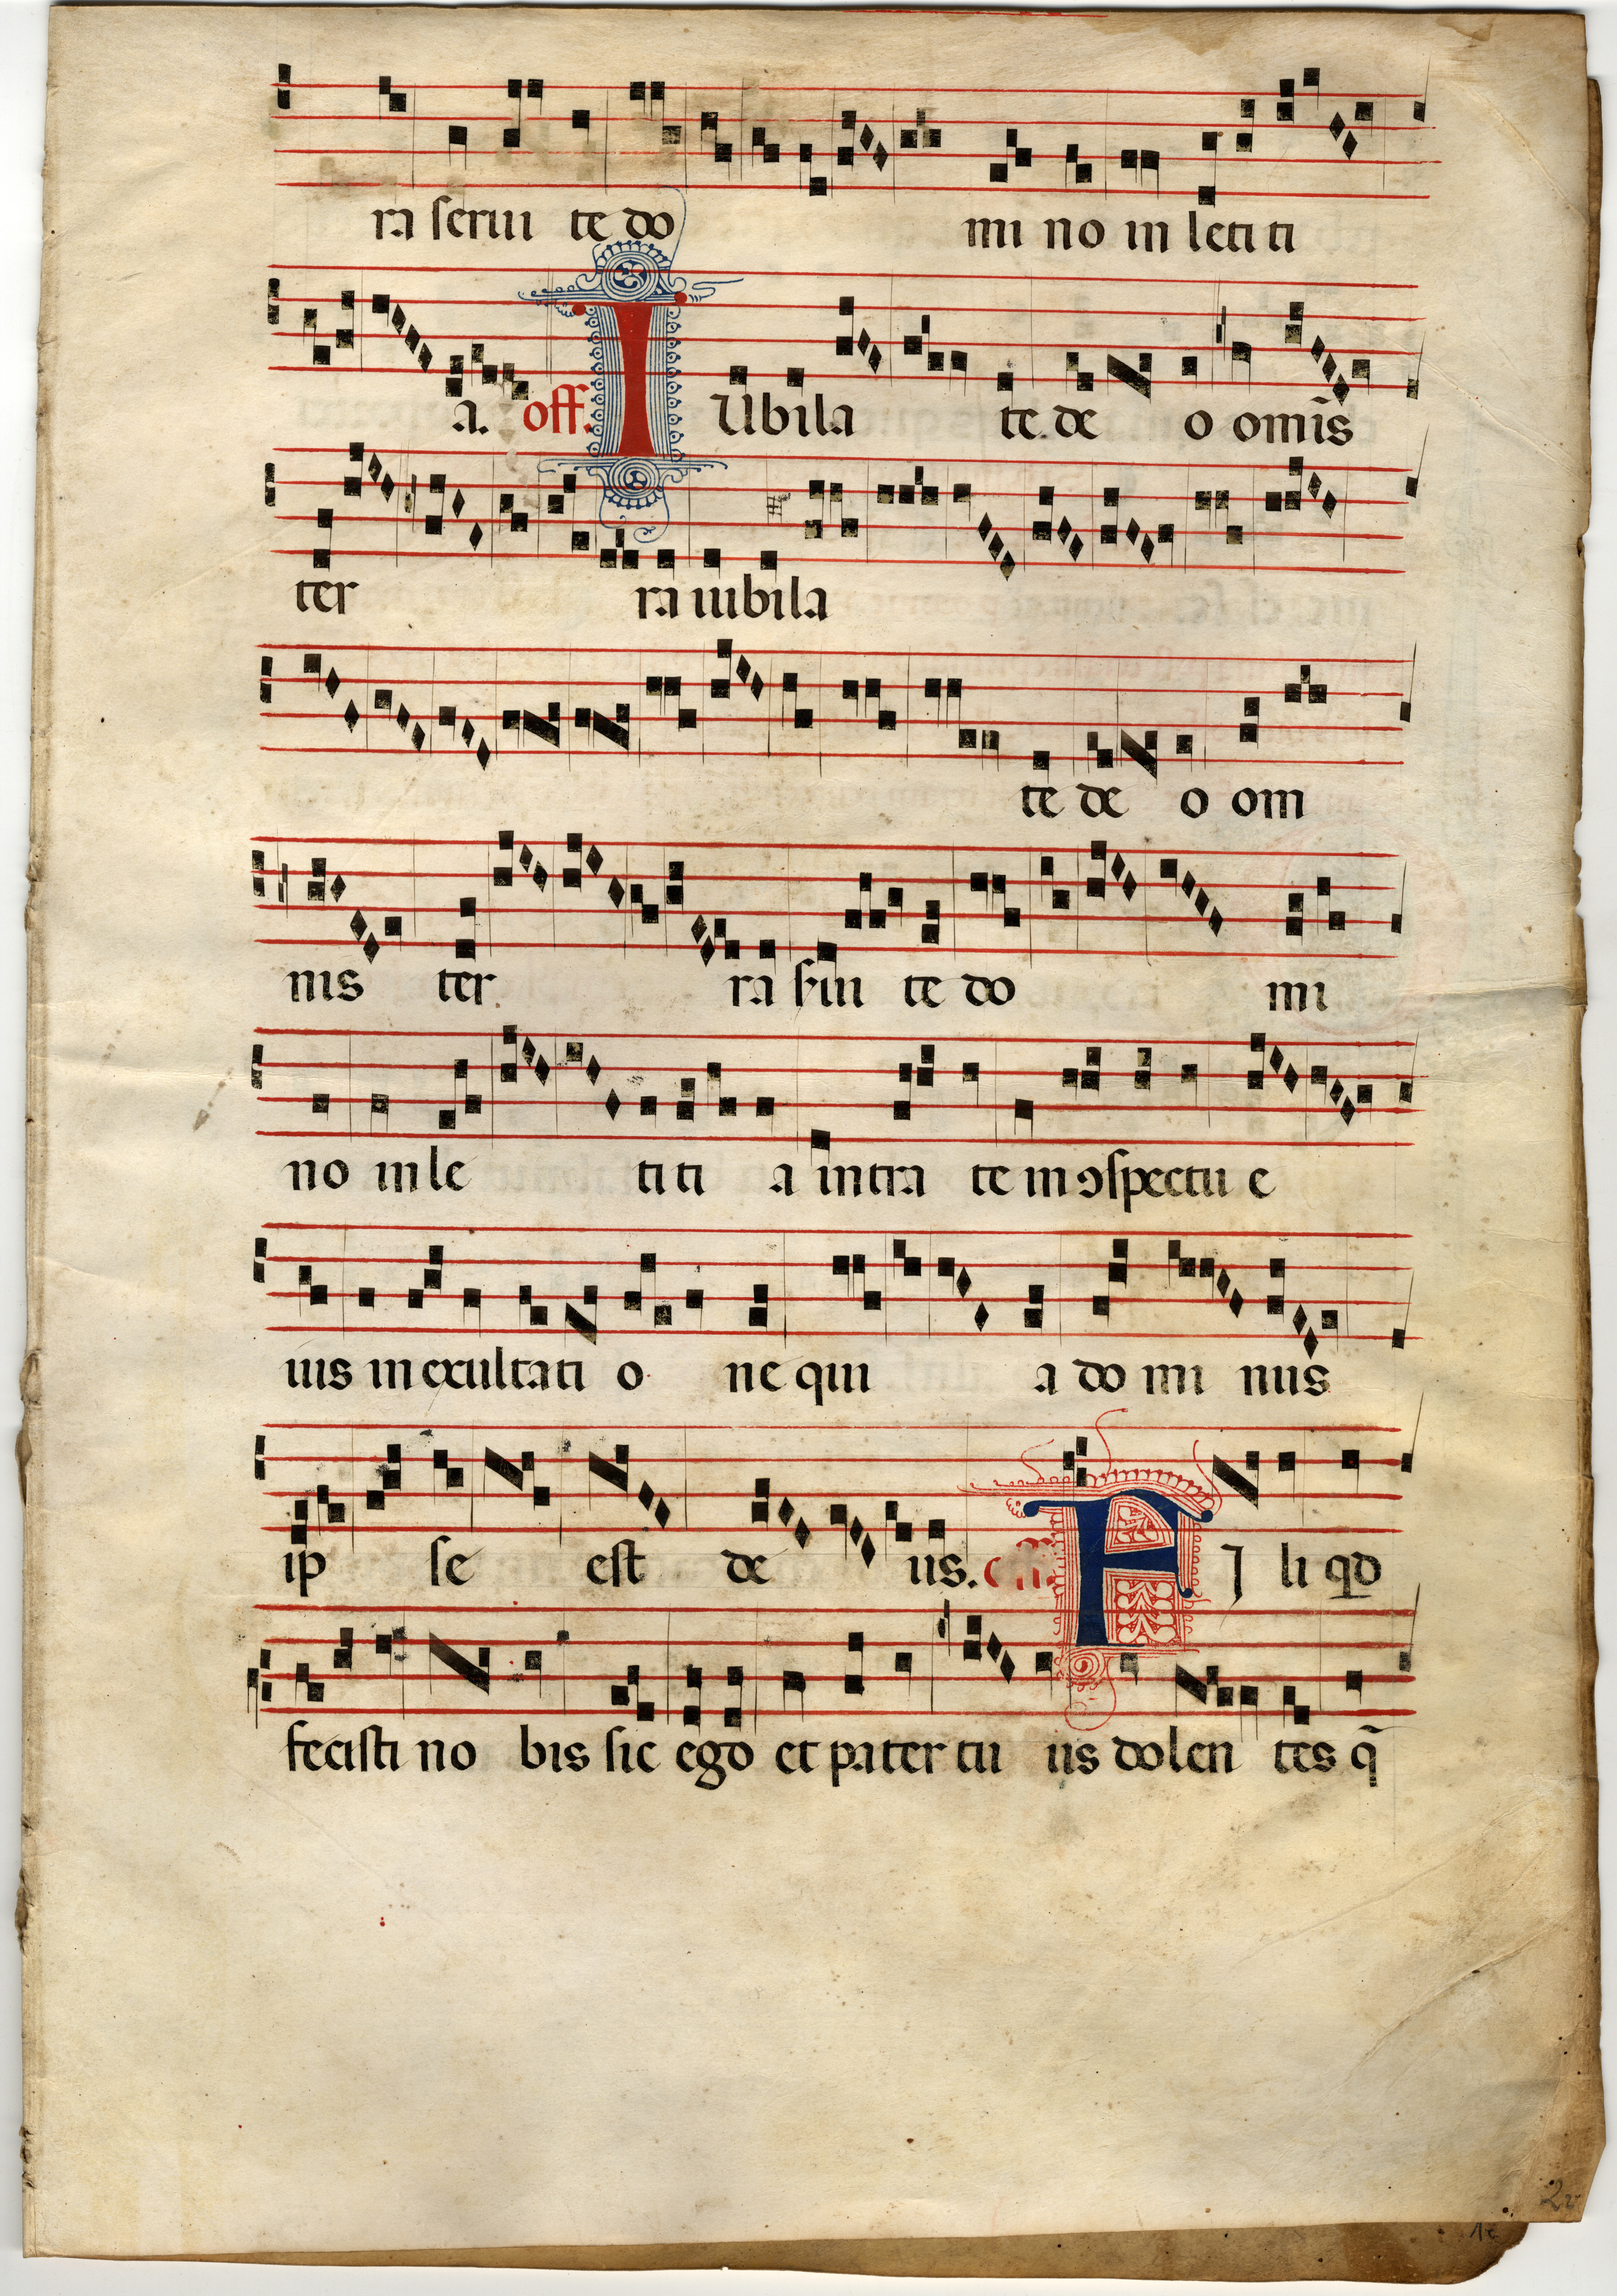 ra serui te do mi no in leti ti
a. off. IUbila te de o om̄is
ter ra iubila
te de o om
nis ter ra ſ͛ui te do mi
no in le ti ti a intra te in ɔspectu e
ius in exultati o ne qui a do mi nus
ip se est de us. FI li qd
fecisti no bis sic ego et pater tu us dolen tes q̄
2v